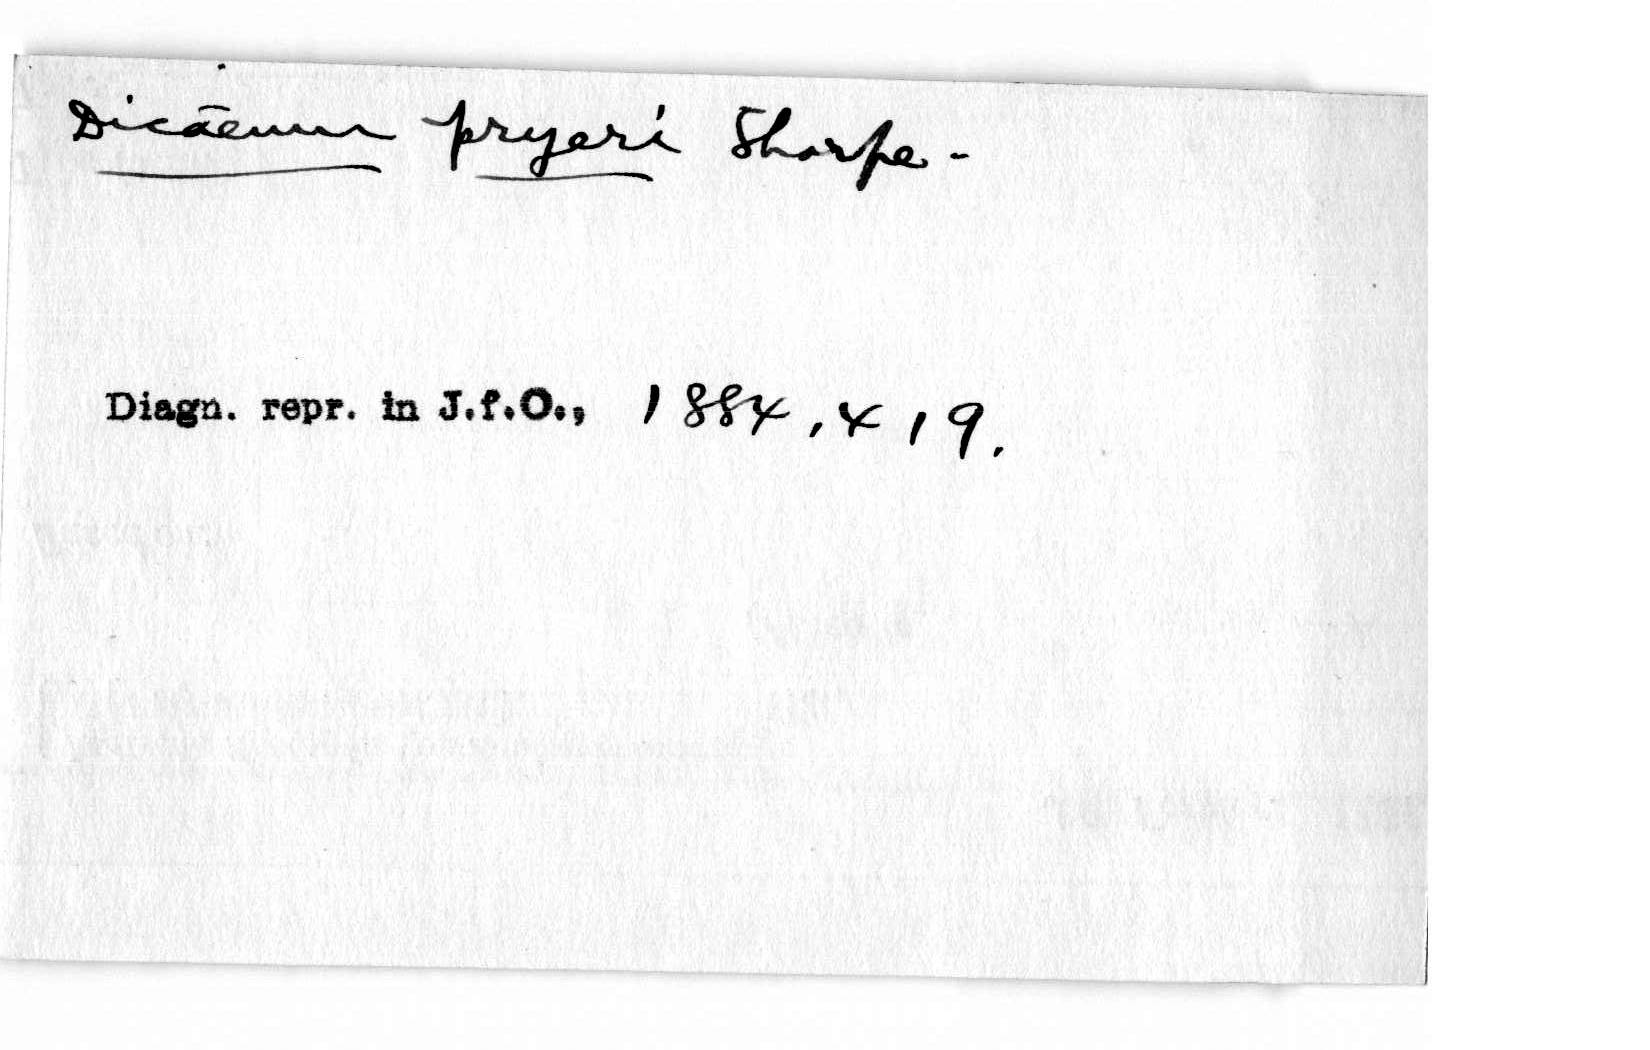 Dicaeum pryeri Sharpe -
Diagn. repr. in J.f.O., 1884, 419.